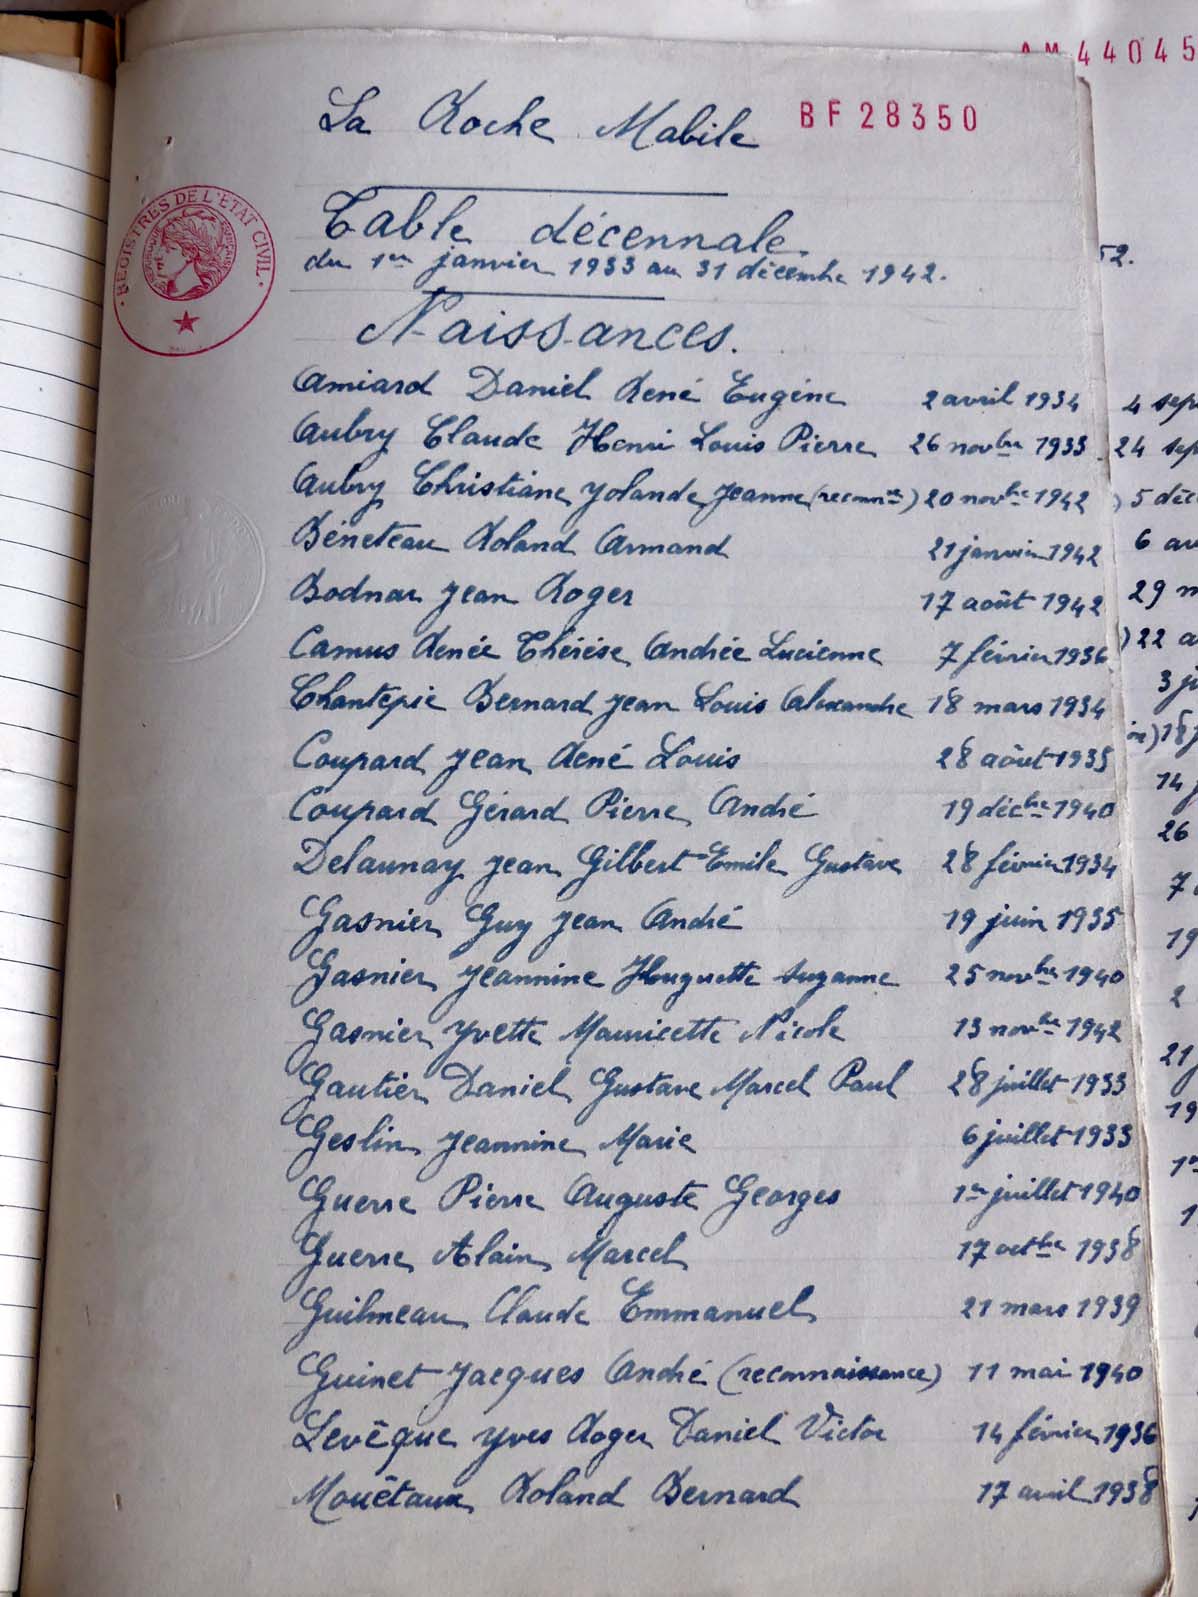 AM 44045
La Roche Mabile BF 28350
REGISTRES DE L'ETAT CIVIL
Table décennale
du 1er janvier 1933 au 31 décembre 1942.
52.
Naissances.
Amiard Daniel René Eugéne 2 avril 1934
4 sep
Aubry Claude Henri Louis Pierre 26 novbre 1933
24 sep
Aubry Christiane Yolande Jeanne (reconnce) 20 novbre 1942
) 5 déc
Béneteau Roland Armand 21 janvier 1942
6 av
Bodnar Jean Roger 17 août 1942
29 m
Camus Renée Thérèse Andrée Lucienne 7 février 1936
) 22 a
Chantepie Bernard Jean Louis Alexandre 18 mars 1934
3 ju
Coupard Jean René Louis 28 août 1935
14 j
Coupard Gérard Pierre André 19 décbre 1940
26
Delaunay Jean Gilbert Emile Gustave 28 février 1934
7
Gasnier Guy Jean André 19 juin 1935
19
Gasnier Jeannine Huguette Suzanne 25 novbre 1940
2
Gasnier Yvette Mauricette Nicole 13 novbre 1942
21 j
Gautier Daniel Gustave Marcel Paul 28 juillet 1933
19
Geslin Jeannine Marie 6 juillet 1933
Guerre Pierre Auguste Georges 1er juillet 1940
Guerre Alain Marcel 17 octbre 1938
Guilmeau Claude Emmanuel 21 mars 1939
Guinet Jacques André (reconnaissance) 11 mai 1940
Levêque Yves Roger Daniel Victor 14 février 1936
Mouêtaux Roland Bernard 17 avril 1938